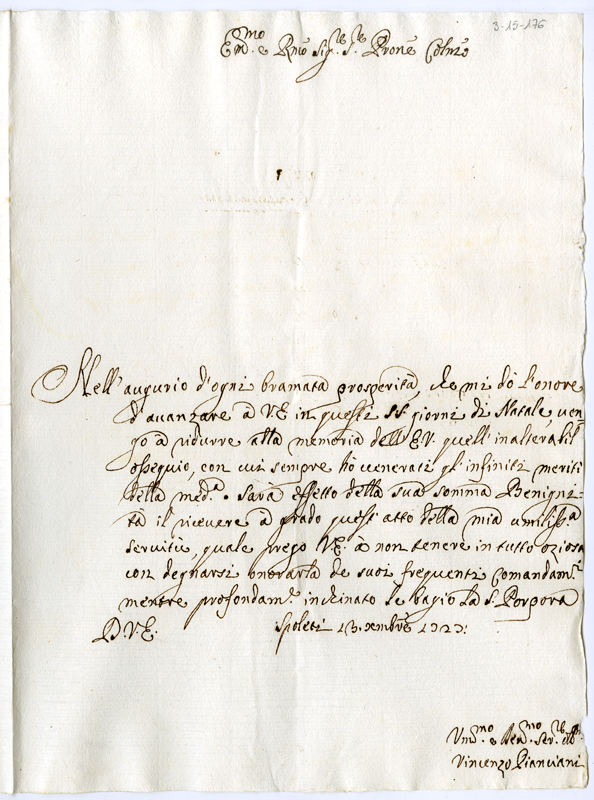 3-15-176
Em.mo e Rmo Sig.re S.re Prone Colmo
Nell'augurio d'ogni bramata prosperità, che mi dò l'onore
d'avanzare à V.E. in questi SS. giorni di Natale, ven-
go à ridurre alla memoria dell'E.V. quell'inalterabil
ossequio, con cui sempre hò venerati gl'infiniti meriti
della med.a. Sarà effetto della sua somma Benigni-
tà il ricevere à grado quest'atto della mia umiliss.a
servitù, quale prego V.E. à non tenere in tutto oziosa
con degnarsi onorarla de suoi frequenti Comandam.ti
mentre profondam.e inchinato le bagio la S. Porpora
D.V.E. Spoleti 13. Xmbre
Um.mo e Dev.mo Ser.re Obb.
Vincenzo Pianciani